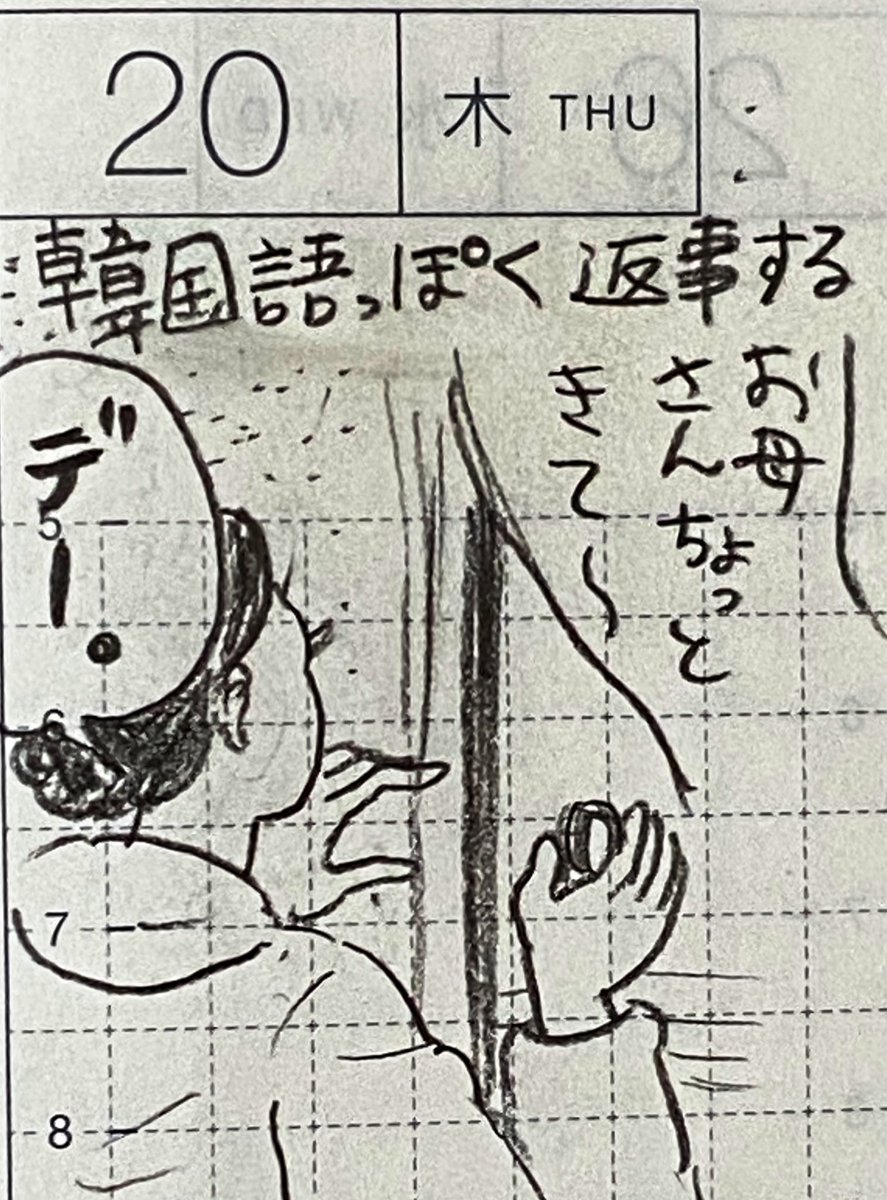 20 木 THU
韓国語っぽく返事する
お母
さんちょっと
きて〜
デ
5
6
7
8